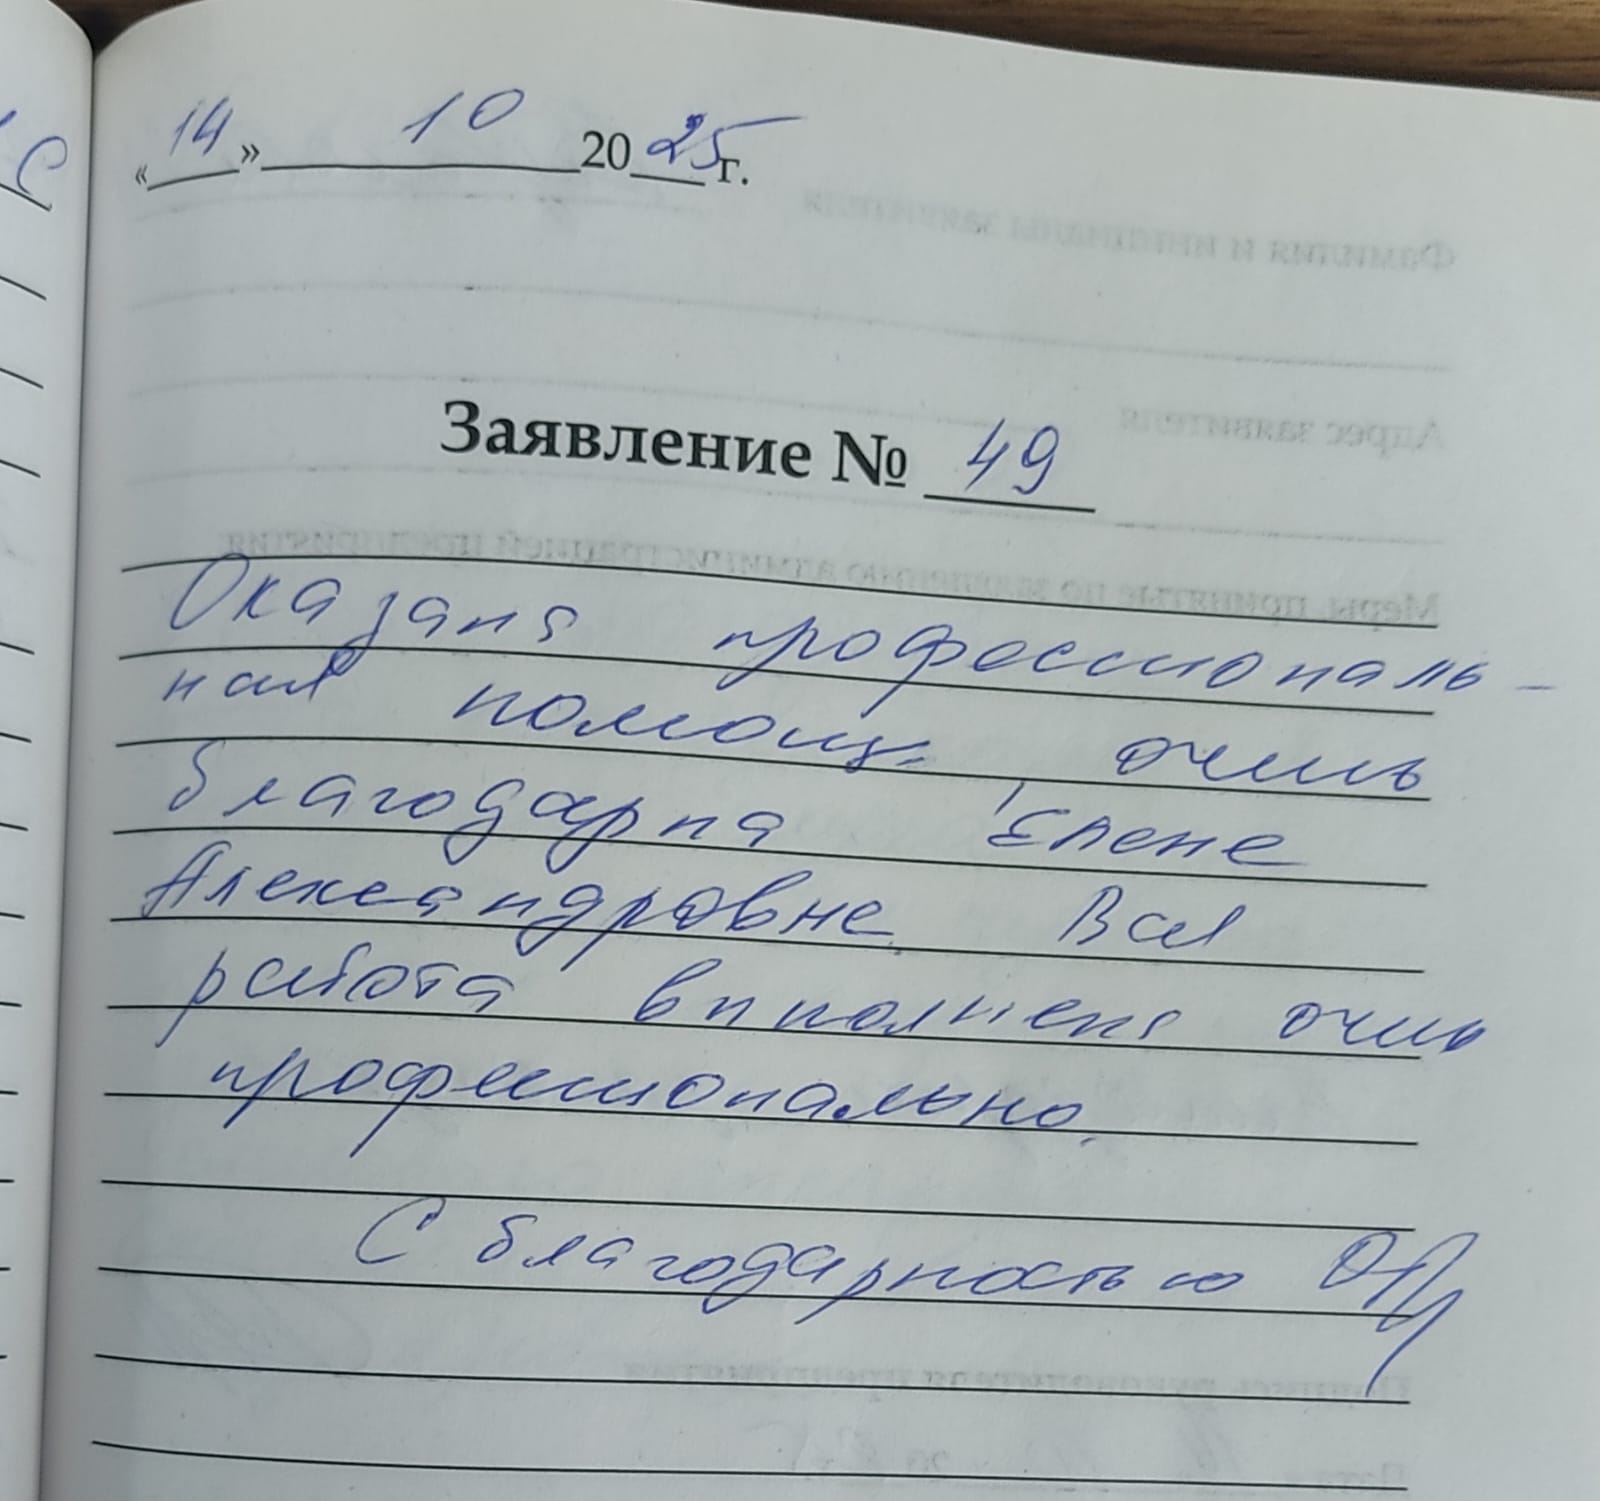 «14» 10 2025 г.
Заявление № 49
Оказана профессиональ-
ная помощь, очень
благодарна Елене
Александровне. Вся
работа выполнена очень
профессионально.
С благодарностью